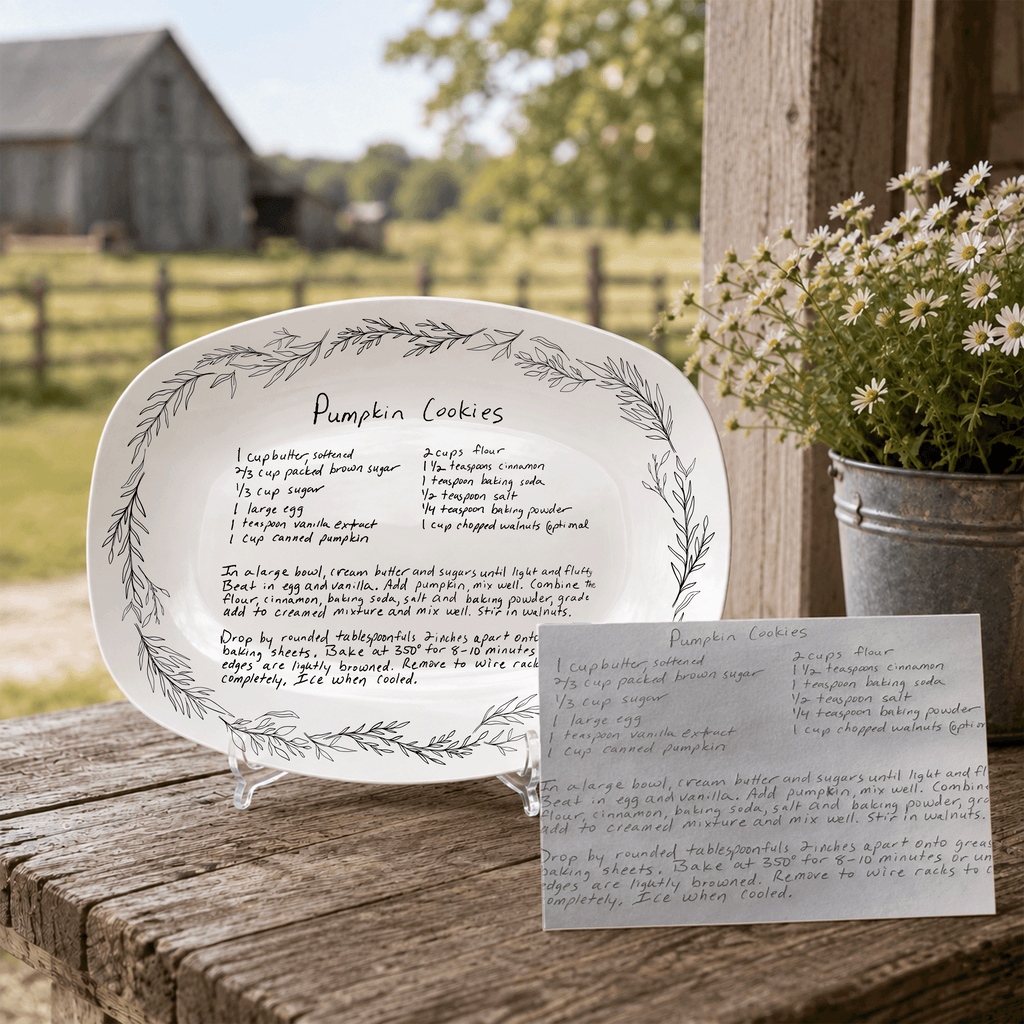 Pumpkin Cookies
1 cup butter, softened
2/3 cup packed brown sugar
1/3 cup sugar
1 large egg
1 teaspoon vanilla extract
1 cup canned pumpkin
2 cups flour
1 1/2 teaspoons cinnamon
1 teaspoon baking soda
1/2 teaspoon salt
1/4 teaspoon baking powder
1 cup chopped walnuts (optional
In a large bowl, cream butter and sugars until light and fluffy
Beat in egg and vanilla. Add pumpkin, mix well. Combine the
flour, cinnamon, baking soda, salt and baking powder, grade
add to creamed mixture and mix well. Stir in walnuts.
Drop by rounded tablespoonfuls 2 inches apart onto
baking sheets. Bake at 350° for 8-10 minutes
edges are lightly browned. Remove to wire rack
completely, Ice when cooled.
Pumpkin Cookies
1 cup butter, softened
2/3 cup packed brown sugar
1/3 cup sugar
1 large egg
1 teaspoon vanilla extract
1 cup canned pumpkin
2 cups flour
1 1/2 teaspoons cinnamon
1 teaspoon baking soda
1/2 teaspoon salt
1/4 teaspoon baking powder
1 cup chopped walnuts (option
In a large bowl, cream butter and sugars until light and fl
Beat in egg and vanilla. Add pumpkin, mix well. Combine
flour, cinnamon, baking soda, salt and baking powder, gra
add to creamed mixture and mix well. Stir in walnuts.
Drop by rounded tablespoonfuls 2 inches apart onto greas
baking sheets. Bake at 350° for 8-10 minutes or un
edges are lightly browned. Remove to wire racks to c
ompletely, Ice when cooled.